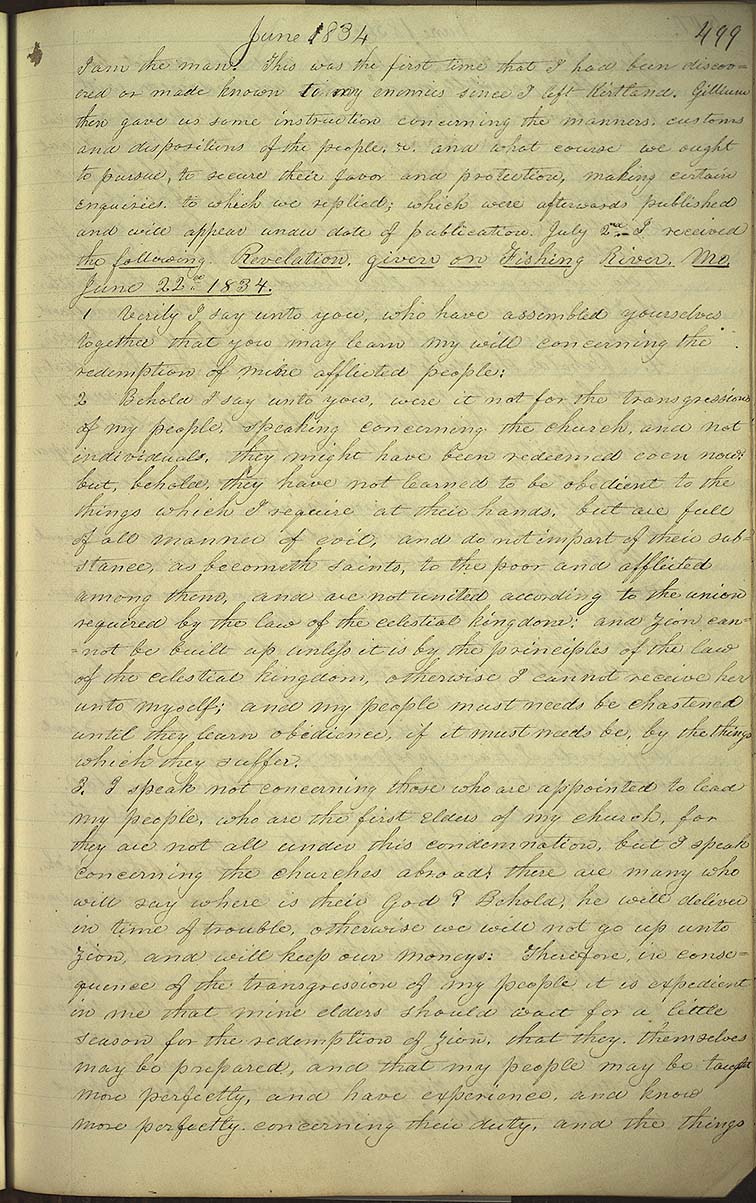 June 1834 499
I am the man. This was the first time that I had been discov=
ered or made known to my enemies since I left Kirtland. Gillium
then gave us some instruction concerning the manners, customs
and dispositions of the people, &c. and what course we ought
to pursue, to secure their favor and protection, making certain
enquiries. to which we replied; which were afterwards published
and will appear under date of publication. July 2nd I received
the following. Revelation, given on Fishing River, Mo,
June 22nd 1834.
1 Verily I say unto you, who have assembled yourselves
together that you may learn my will concerning the
redemption of mine afflicted people:
2 Behold I say unto you, were it not for the transgressions
of my people, speaking concerning the church, and not
individuals, they might have been redeemed even now:
but, behold, they have not learned to be obedient to the
things which I require at their hands, but are full
of all manner of evil, and do not impart of their sub=
stance, as becometh saints, to the poor and afflicted
among them, and are not united according to the union
required by the law of the celestial kingdom: and Zion can=
=not be built up unless it is by the principles of the law
of the celestial kingdom, otherwise I cannot receive her
unto myself; and my people must needs be chastened
until they learn obedience, if it must needs be, by the things
which they suffer.
3. I speak not concerning those who are appointed to lead
my people, who are the first elders of my church, for
they are not all under this condemnation, but I speak
concerning the churches abroad; there are many who
will say where is their God? Behold, he will deliver
in time of trouble, otherwise we will not go up unto
Zion, and will keep our moneys: Therefore, in conse=
quence of the transgression of my people it is expedient
in me that mine elders should wait for a little
season for the redemption of Zion, that they, themselves
may be prepared, and that my people may be taught
more perfectly, and have experience, and know
more perfectly concerning their duty, and the things